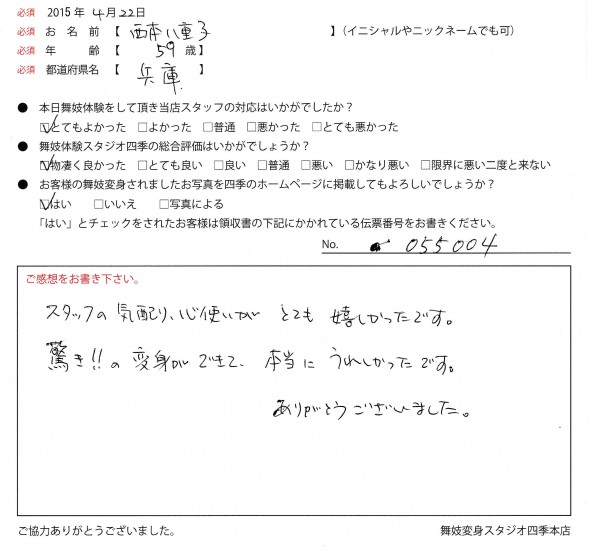 必須 2015年4月22日
必須 お名前【 西本八重子 】(イニシャルやニックネームでも可)
必須 年齢【 59歳】
必須 都道府県名【 兵庫 】
● 本日舞妓体験をして頂き当店スタッフの対応はいかがでしたか?
☑とてもよかった □よかった □普通 □悪かった □とても悪かった
● 舞妓体験スタジオ四季の総合評価はいかがでしょうか?
☑物凄く良かった □とても良い □良い □普通 □悪い □かなり悪い □限界に悪い二度と来ない
● お客様の舞妓変身されましたお写真を四季のホームページに掲載してもよろしいでしょうか?
☑はい □いいえ □写真による
「はい」とチェックをされたお客様は領収書の下記にかかれている伝票番号をお書きください。
No. 055004
ご感想をお書き下さい。
スタッフの気配り、心使いが とても 嬉しかったです。
驚き!!の変身ができて、本当に うれしかったです。
ありがとうございました。
ご協力ありがとうございました。
舞妓変身スタジオ四季本店